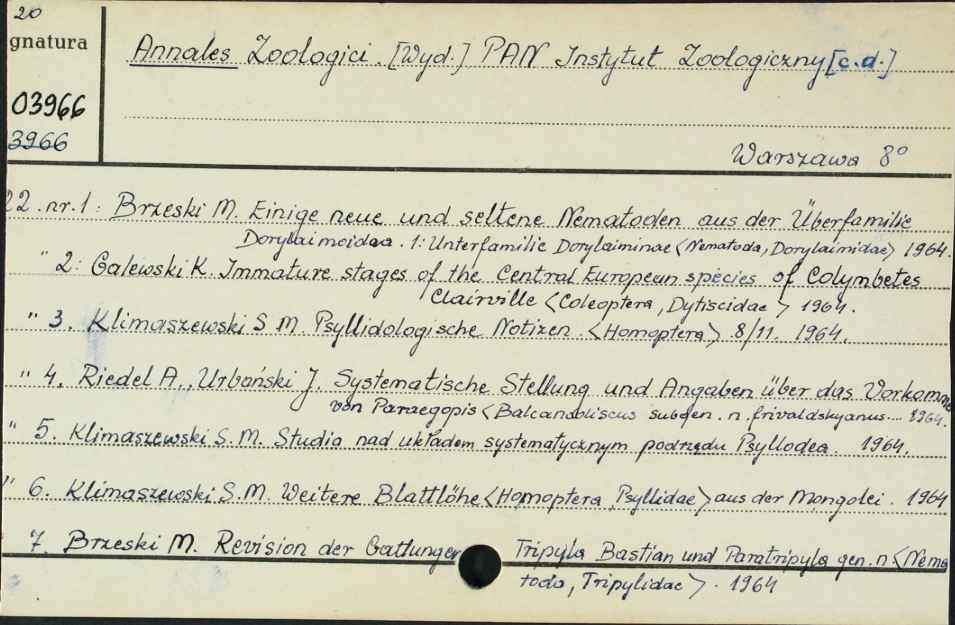 20
gnatura
Annales Zoologici. [Wyd.] PAN Instytut Zoologiczny [c.d.]
03966
3966
Warszawa 8°
22. nr. 1: Brzeski M. Einige neue und seltene Nematoden aus der Überfamilie
Dorylaimoidea. 1: Unterfamilie Dorylaiminae <Nematoda, Dorylaimidae> 1964.
" 2: Galewski K. Immature stages of the Central European species of Colymbetes
Clairville <Coleoptera, Dytiscidae> 1964.
" 3. Klimaszewski S. M. Psyllidologische Notizen. <Homoptera> 8/11. 1964.
" 4. Riedel A., Urbański J. Systematische Stellung und Angaben über das Vorkomme
von Paraegopis <Balcanodiscus subgen. n. frivaldskyanus... 1964.
" 5. Klimaszewski S. M. Studia nad układem systematycznym podrzędu Psyllodea. 1964.
" 6. Klimaszewski S. M. Weitere Blattlöhe <Homoptera Psyllidae> aus der Mongolei. 1964
7. Brzeski M. Revision der Gattungen Tripyla Bastian und Paratripyla gen. n. <Nema
toda, Tripylidae>. 1964